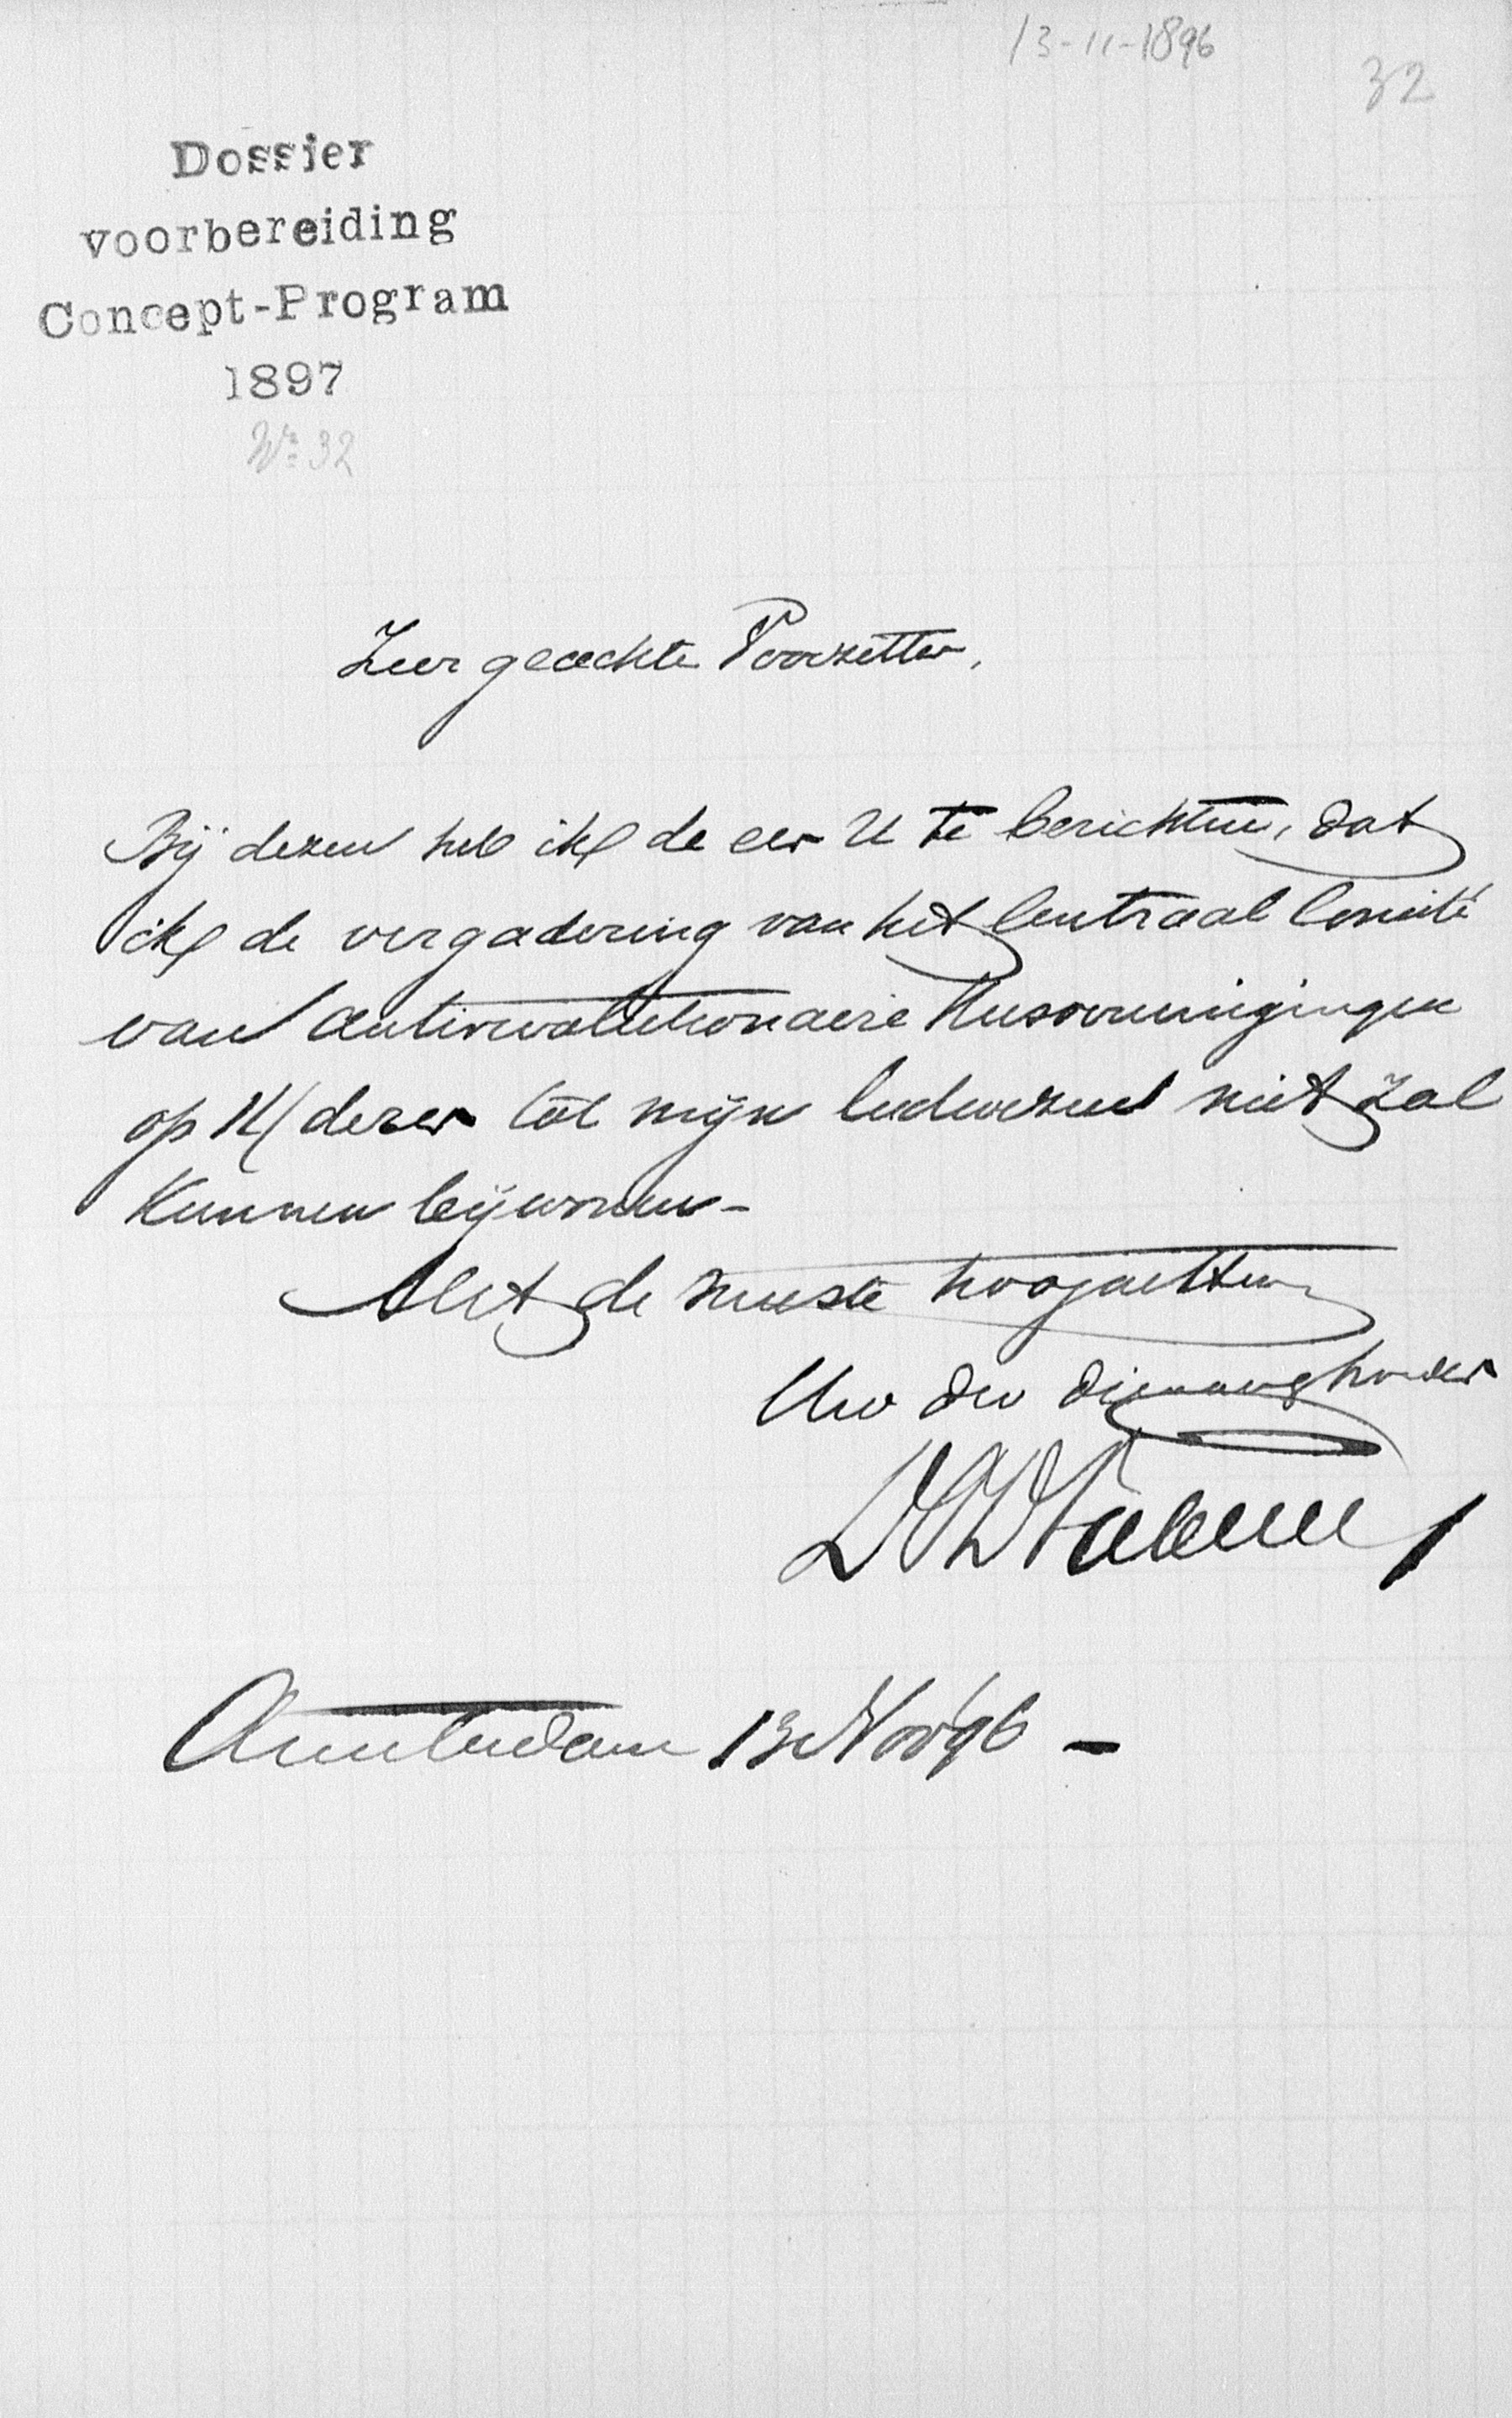 13-11-1896
32
Dossier
voorbereiding
Concept-Program
1897
No 32
Zeer geachte Voorzitter,
Bij dezen heb ik de eer U te berichten, dat
ik de vergadering van het Centraal Comité
van Antirevolutionaire Kiesvereenigingen
op 14 dezer tot mijn leedwezen niet zal
Kunnen bijwonen -
Met de meeste hoogachting
Uw dw dienaar
Amsterdam 13 Nov 96 -